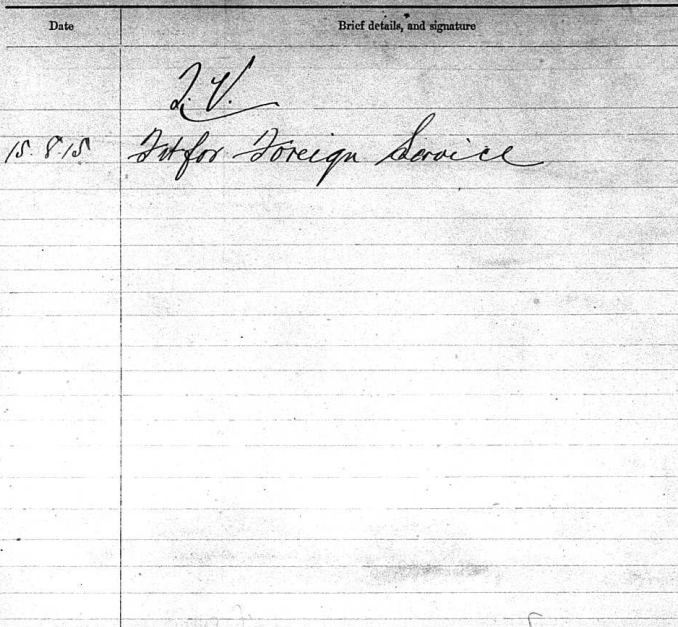 Date Brief details, and signature
15.8.15 Fit for Foreign Service